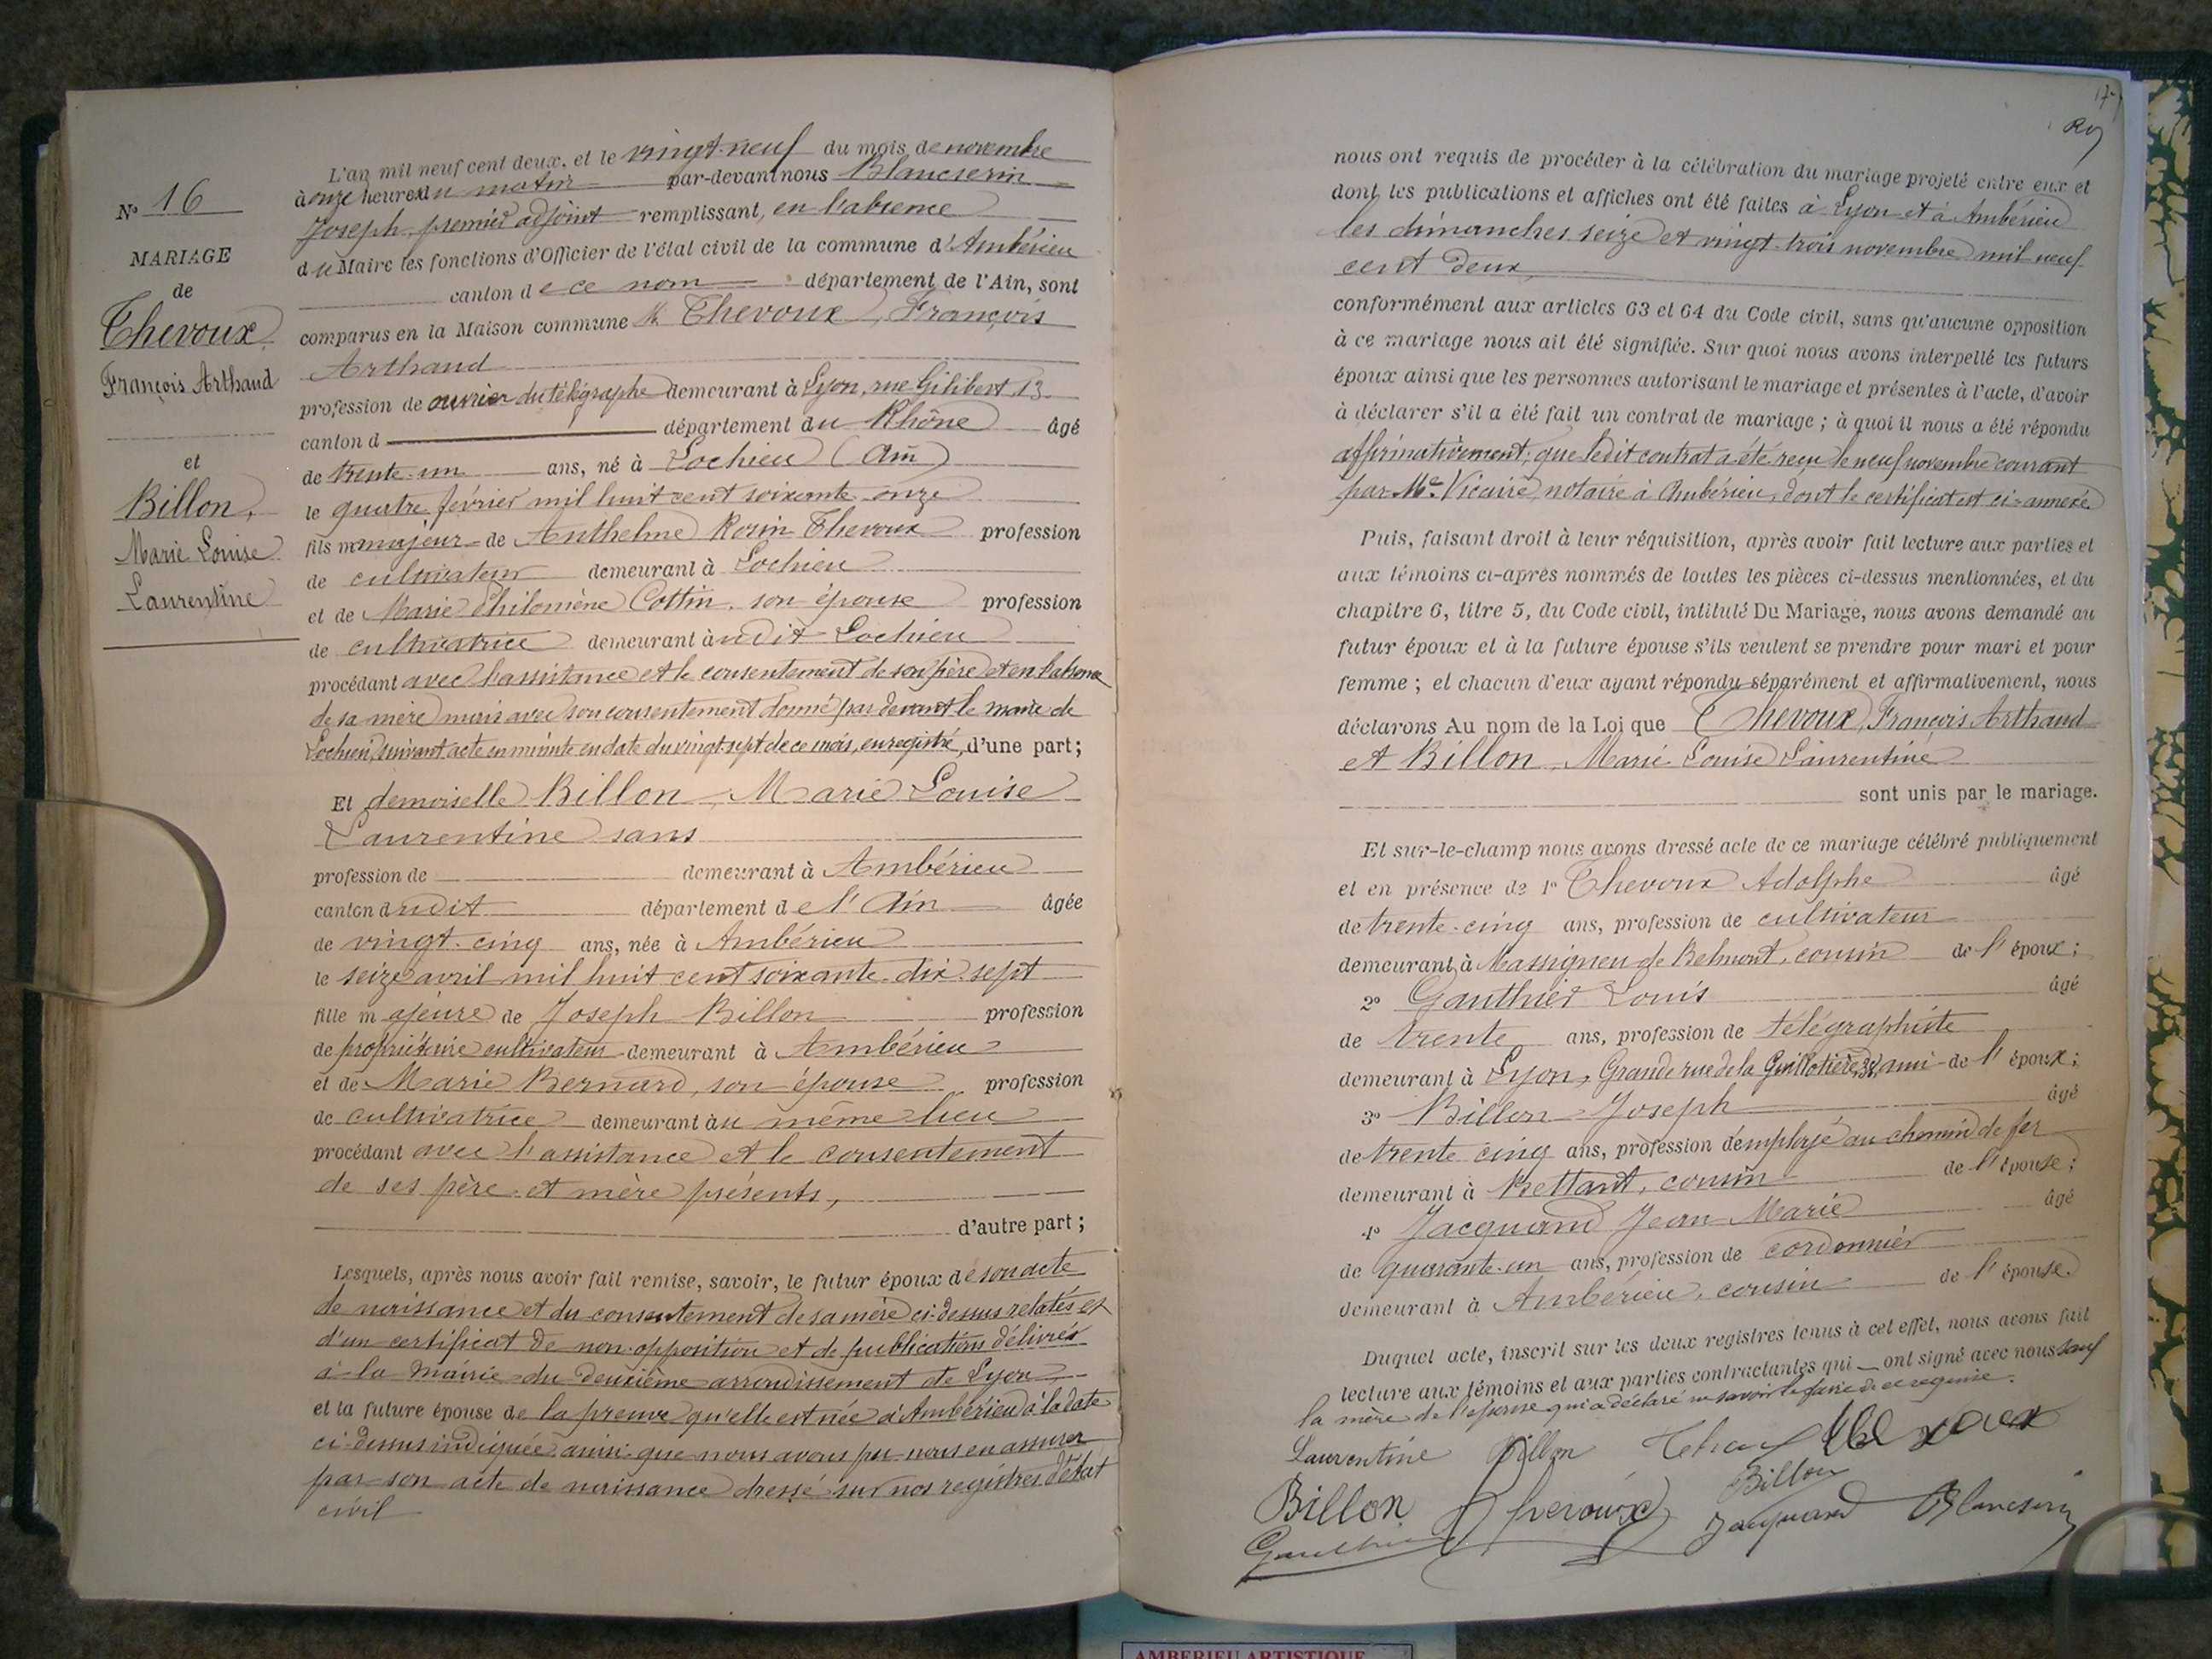 N° 16
MARIAGE
de
Thevoux
François Arthaud
et
Billon,
Marie Louise
Laurentine
L'an mil neuf cent deux, et le vingt-neuf du mois de novembre
à onze heures du matin par-devant nous Blancserin
Joseph, premier adjoint remplissant, en l'absence
du Maire les fonctions d'Officier de l'état civil de la commune d'Ambérieu
canton de ce nom département de l'Ain, sont
comparus en la Maison commune M. Thevoux, François
Arthaud
profession de ouvrier du télégraphe demeurant à Lyon, rue Gilibert, 13
canton d département du Rhône âgé
de trente-un ans, né à Lochieu (Ain)
le quatre février mil huit cent soixante-onze
fils majeur de Anthelme Rosin Thevoux profession
de cultivateur demeurant à Lochieu
et de Marie Philomène Cottin, son épouse profession
de cultivatrice demeurant à udit Lochieu
procédant avec l'assistance et le consentement de son père et en l'absence
de sa mère mais avec son consentement donné par devant le maire de
Lochieu, suivant acte en minute en date du vingt-sept de ce mois, enregistré, d'une part;
Et demoiselle Billon, Marie Louise
Laurentine sans
profession de demeurant à Ambérieu
canton dudit département de l'Ain âgée
de vingt-cinq ans, née à Ambérieu
le seize avril mil huit cent soixante-dix-sept
fille majeure de Joseph Billon profession
de propriétaire cultivateur demeurant à Ambérieu
et de Marie Bernard, son épouse profession
de cultivatrice demeurant au même lieu
procédant avec l'assistance et le consentement
de ses père et mère présents,
d'autre part;
Lesquels, après nous avoir fait remise, savoir, le futur époux de son acte
de naissance et du consentement de sa mère ci-dessus relatés et
d'un certificat de non-opposition et de publications délivrés
à la Mairie du deuxième arrondissement de Lyon,
et la future épouse de la preuve qu'elle est née à Ambérieu à la date
ci-dessus indiquée ainsi que nous avons pu nous en assurer
par son acte de naissance dressé sur nos registres d'état
civil
17
nous ont requis de procéder à la célébration du mariage projeté entre eux et
dont les publications et affiches ont été faites à Lyon et à Ambérieu
les dimanches seize et vingt-trois novembre mil neuf
cent deux
conformément aux articles 63 et 64 du Code civil, sans qu'aucune opposition
à ce mariage nous ait été signifiée. Sur quoi nous avons interpellé les futurs
époux ainsi que les personnes autorisant le mariage et présentes à l'acte, d'avoir
à déclarer s'il a été fait un contrat de mariage; à quoi il nous a été répondu
affirmativement, que ledit contrat a été reçu le neuf novembre courant
par Me Vicaire, notaire à Ambérieu, dont le certificat est ci-annexé.
Puis, faisant droit à leur réquisition, après avoir fait lecture aux parties et
aux témoins ci-après nommés de toutes les pièces ci-dessus mentionnées, et du
chapitre 6, titre 5, du Code civil, intitulé Du Mariage, nous avons demandé au
futur époux et à la future épouse s'ils veulent se prendre pour mari et pour
femme; et chacun d'eux ayant répondu séparément et affirmativement, nous
déclarons Au nom de la Loi que Thevoux, François Arthaud
et Billon, Marie Louise Laurentine
sont unis par le mariage.
Et sur-le-champ nous avons dressé acte de ce mariage célébré publiquement
et en présence de 1° Thevoux Adolphe âgé
de trente-cinq ans, profession de cultivateur
demeurant à Massigneu de Belmont, cousin de l'époux;
2° Gauthier Louis âgé
de trente ans, profession de télégraphiste
demeurant à Lyon, Grande rue de la Guillotière, ami de l'époux;
3° Billon Joseph âgé
de trente cinq ans, profession d'employé au chemin de fer
demeurant à Bettant, cousin de l'épouse;
4° Jacquand Jean Marie âgé
de quarante-un ans, profession de cordonnier
demeurant à Ambérieu, cousin de l'épouse.
Duquel acte, inscrit sur les deux registres tenus à cet effet, nous avons fait
lecture aux témoins et aux parties contractantes qui ont signé avec nous sauf
la mère de l'épouse qui a déclaré ne savoir le faire de ce requise.
Laurentine Billon
Billon Thevoux Billon Jacquand Blancserin
Gauthier
AMBERIEU ARTISTIQUE